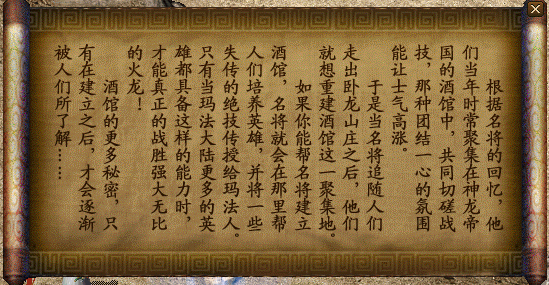 根据名将的回忆，他
们当年时常聚集在神龙帝
国的酒馆中，共同切磋战
技，那种团结一心的氛围
能让士气高涨。
于是当名将追随人们
走出卧龙山庄之后，他们
就想重建酒馆这一聚集地。
如果你能帮名将建立
酒馆，名将就会在那里帮
人们培养英雄，并将一些
失传的绝技传授给玛法人。
只有当玛法大陆更多的英
雄都具备这样的能力时，
才能真正的战胜强大无比
的火龙！
酒馆的更多秘密，只
有在建立之后，才会逐渐
被人们所了解……